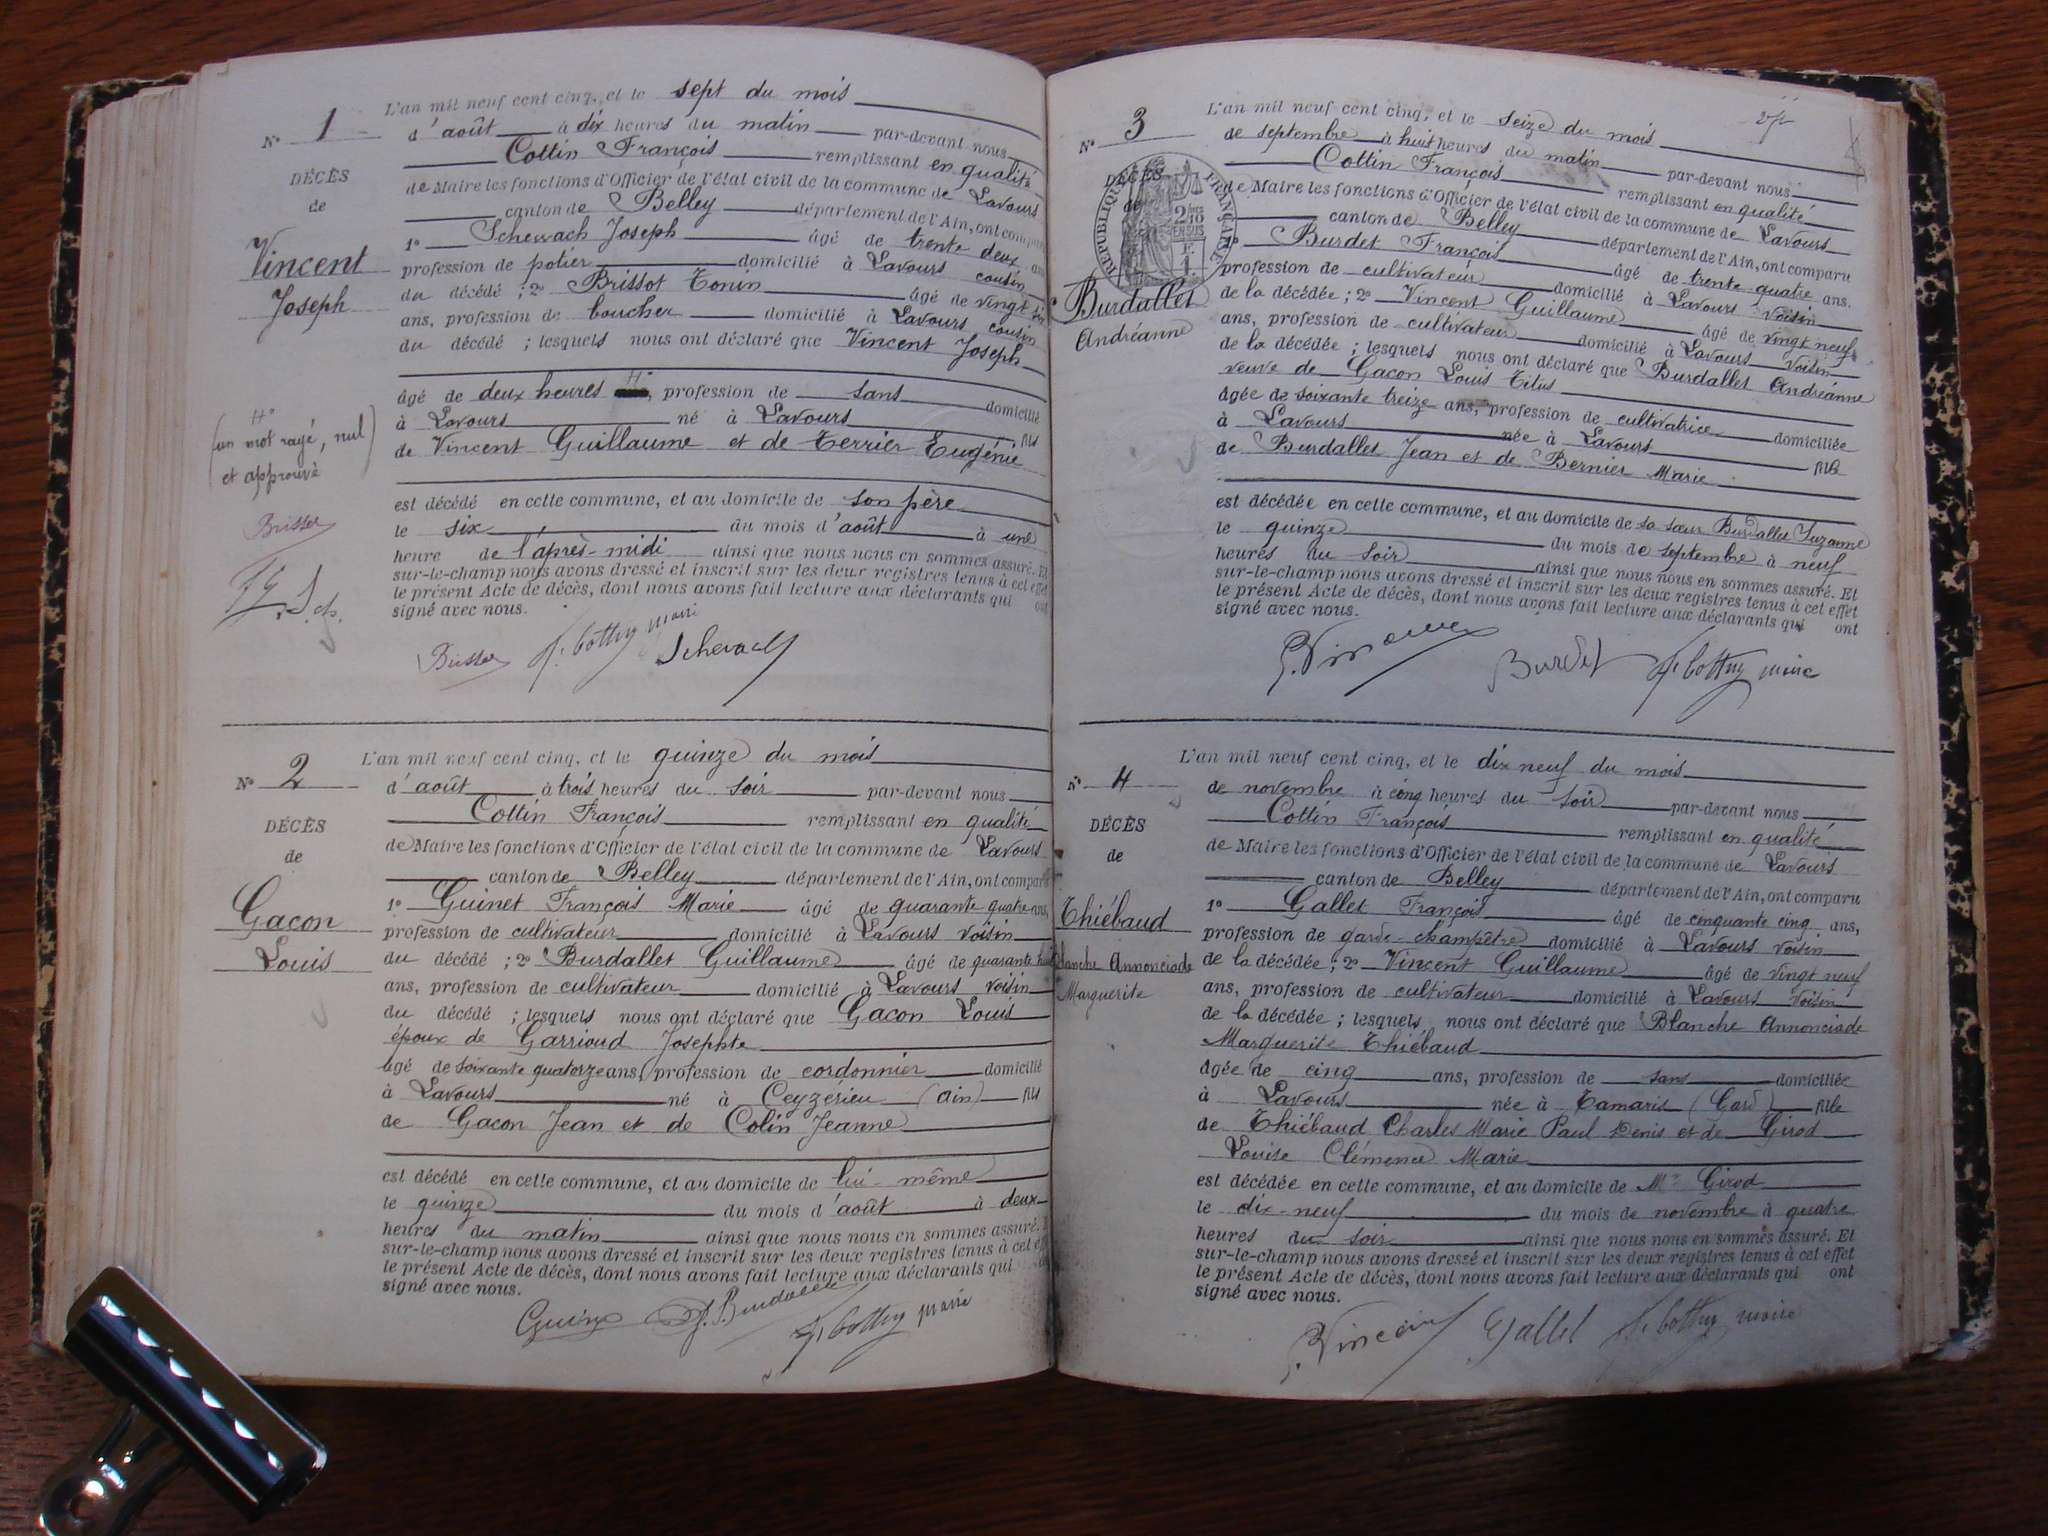 N° 1
DÉCÈS
de
Vincent
Joseph
(un mot rayé, nul
et approuvé
L'an mil neuf cent cinq, et le sept du mois
d'août à dix heures du matin par-devant nous
Cottin François remplissant en qualité
de Maire les fonctions d'Officier de l'état civil de la commune de Lavours
canton de Belley département de l'Ain, ont comparu
1° Schewach Joseph âgé de trente deux ans
profession de potier domicilié à Lavours cousin
du décédé ; 2° Brissot Tonin âgé de vingt
ans, profession de boucher domicilié à Lavours cousin
du décédé ; lesquels nous ont déclaré que Vincent Joseph
âgé de deux heures, profession de sans domicilié
à Lavours né à Lavours fils
de Vincent Guillaume et de Terrier Eugénie
est décédé en cette commune, et au domicile de son père
le six du mois d'août à une
heure de l'après-midi ainsi que nous nous en sommes assuré. Et
sur-le-champ nous avons dressé et inscrit sur les deux registres tenus à cet effet
le présent Acte de décès, dont nous avons fait lecture aux déclarants qui ont
signé avec nous.
f. Cottin maire Schewach
N° 2
DÉCÈS
de
Gacon
Louis
L'an mil neuf cent cinq, et le quinze du mois
d'août à trois heures du soir par-devant nous
Cottin François remplissant en qualité
de Maire les fonctions d'Officier de l'état civil de la commune de Lavours
canton de Belley département de l'Ain, ont comparu
1° Guinet François Marie âgé de quarante quatre ans,
profession de cultivateur domicilié à Lavours voisin
du décédé ; 2° Burdallet Guillaume âgé de quarante huit
ans, profession de cultivateur domicilié à Lavours voisin
du décédé ; lesquels nous ont déclaré que Gacon Louis
époux de Garrioud Josephte
âgé de soixante quatorze ans, profession de cordonnier domicilié
à Lavours né à Ceyzérieu (ain) fils
de Gacon Jean et de Colin Jeanne
est décédé en cette commune, et au domicile de lui-même
le quinze du mois d'août à deux
heures du matin ainsi que nous nous en sommes assuré. E
sur-le-champ nous avons dressé et inscrit sur les deux registres tenus à cet eff
le présent Acte de décès, dont nous avons fait lecture aux déclarants qui
signé avec nous.
Guinet Burdallet f. Cottin maire
N° 3
DÉCÈS
de
RÉPUBLIQUE FRANÇAISE
Burdallet
Andréanne
L'an mil neuf cent cinq, et le seize du mois
de septembre à huit heures du matin par-devant nous
Cottin François remplissant en qualité
de Maire les fonctions d'Officier de l'état civil de la commune de Lavours
canton de Belley département de l'Ain, ont comparu
1° Burdet François âgé de trente quatre ans.
profession de cultivateur domicilié à Lavours voisin
de la décédée ; 2° Vincent Guillaume âgé de vingt neuf
ans, profession de cultivateur domicilié à Lavours voisin
de la décédée ; lesquels nous ont déclaré que Burdallet Andréanne
veuve de Gacon Louis Titus
âgée de soixante treize ans, profession de cultivatrice domiciliée
à Lavours née à Lavours
de Burdallet Jean et de Bernier Marie fille
est décédée en cette commune, et au domicile de sa sœur Burdallet Suzanne
le quinze du mois de septembre à neuf
heures du soir ainsi que nous nous en sommes assuré. Et
sur-le-champ nous avons dressé et inscrit sur les deux registres tenus à cet effet
le présent Acte de décès, dont nous avons fait lecture aux déclarants qui ont
signé avec nous.
G. Vincent Burdet f. Cottin maire
N° 4
DÉCÈS
de
Thiébaud
Blanche Annonciade
Marguerite
L'an mil neuf cent cinq, et le dix neuf du mois
de novembre à cinq heures du soir par-devant nous
Cottin François remplissant en qualité
de Maire les fonctions d'Officier de l'état civil de la commune de Lavours
canton de Belley département de l'Ain, ont comparu
1° Gallet François âgé de cinquante cinq ans,
profession de garde-champêtre domicilié à Lavours voisin
de la décédée ; 2° Vincent Guillaume âgé de vingt neuf
ans, profession de cultivateur domicilié à Lavours voisin
de la décédée ; lesquels nous ont déclaré que Blanche Annonciade
Marguerite Thiébaud
âgée de cinq ans, profession de sans domiciliée
à Lavours née à Tamaris (Gard) fille
de Thiébaud Charles Marie Paul Denis et de Girod
Louise Clémence Marie
est décédée en cette commune, et au domicile de Mr Girod
le dix-neuf du mois de novembre à quatre
heures du soir ainsi que nous nous en sommes assuré. Et
sur-le-champ nous avons dressé et inscrit sur les deux registres tenus à cet effet
le présent Acte de décès, dont nous avons fait lecture aux déclarants qui ont
signé avec nous.
G. Vincent Gallet f. Cottin maire